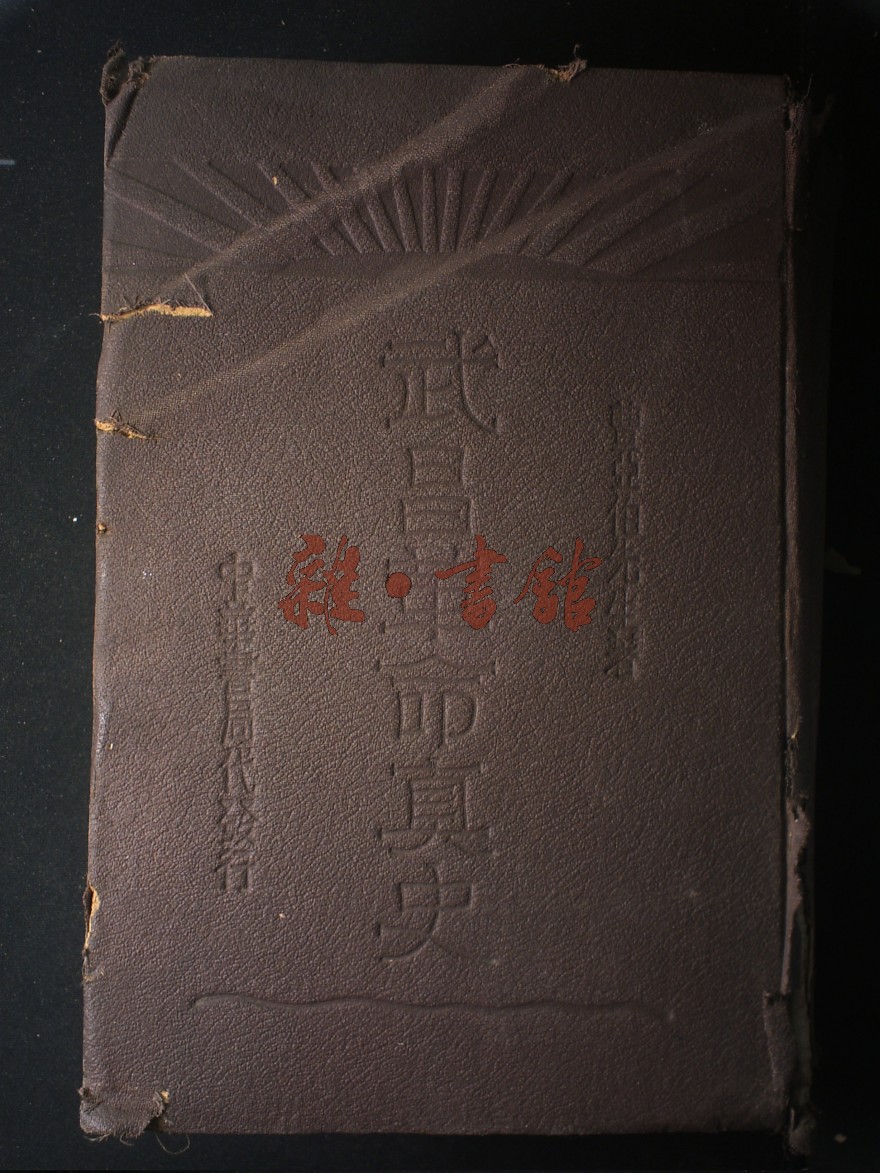 武昌革命真史
中華書局代發行
雜·書館